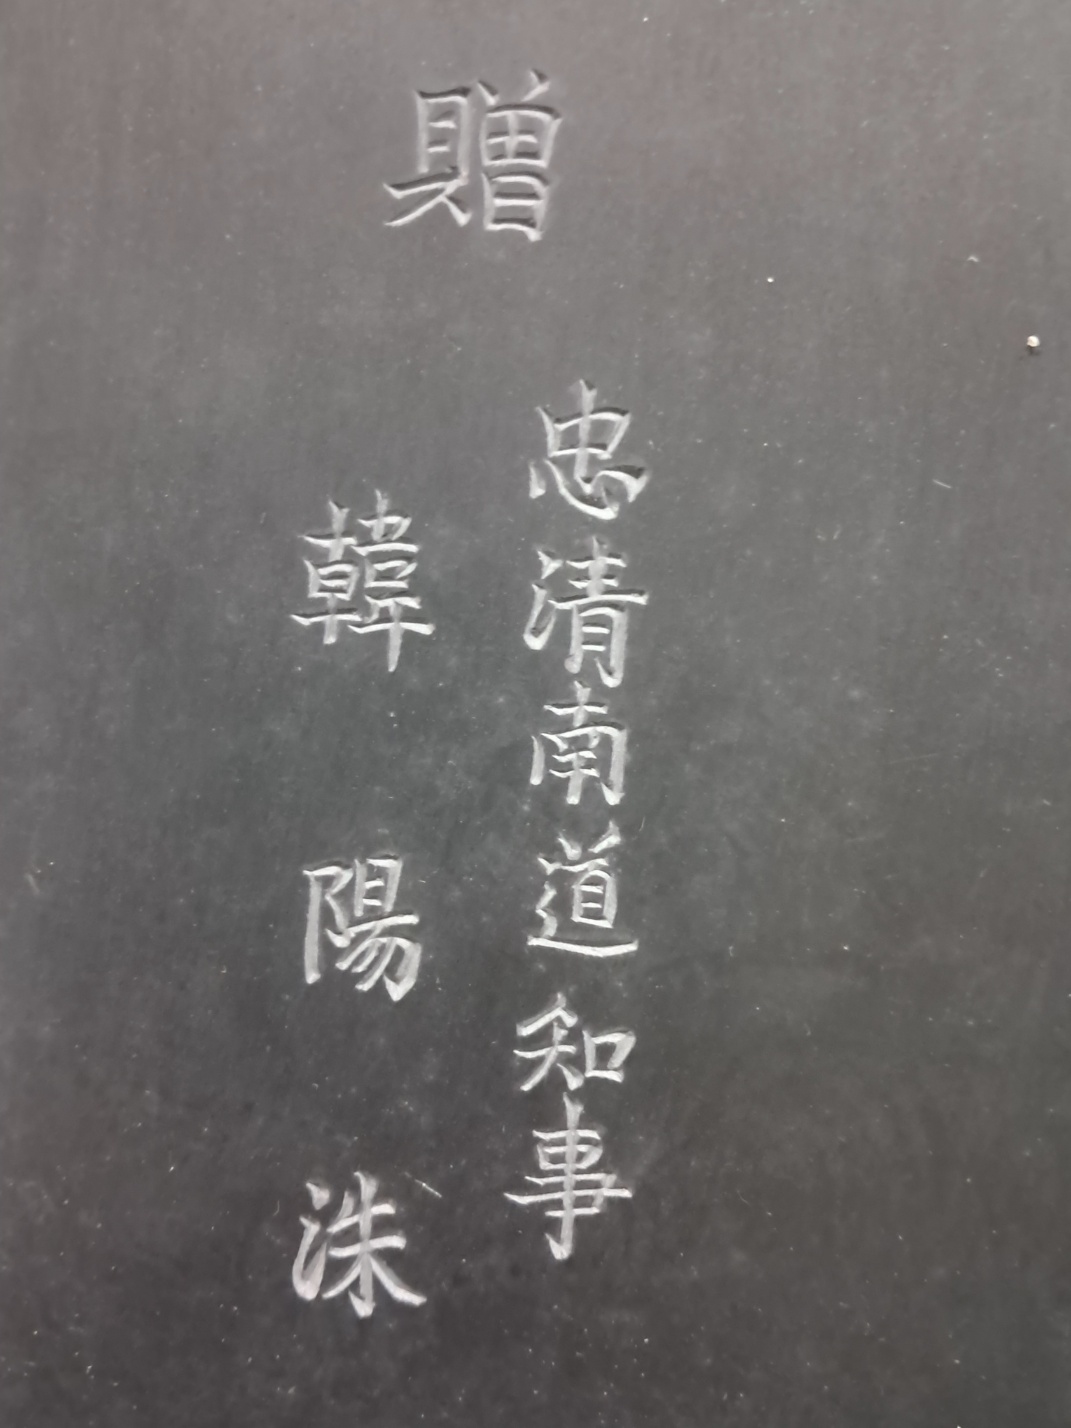 贈
忠清南道知事
韓陽洙